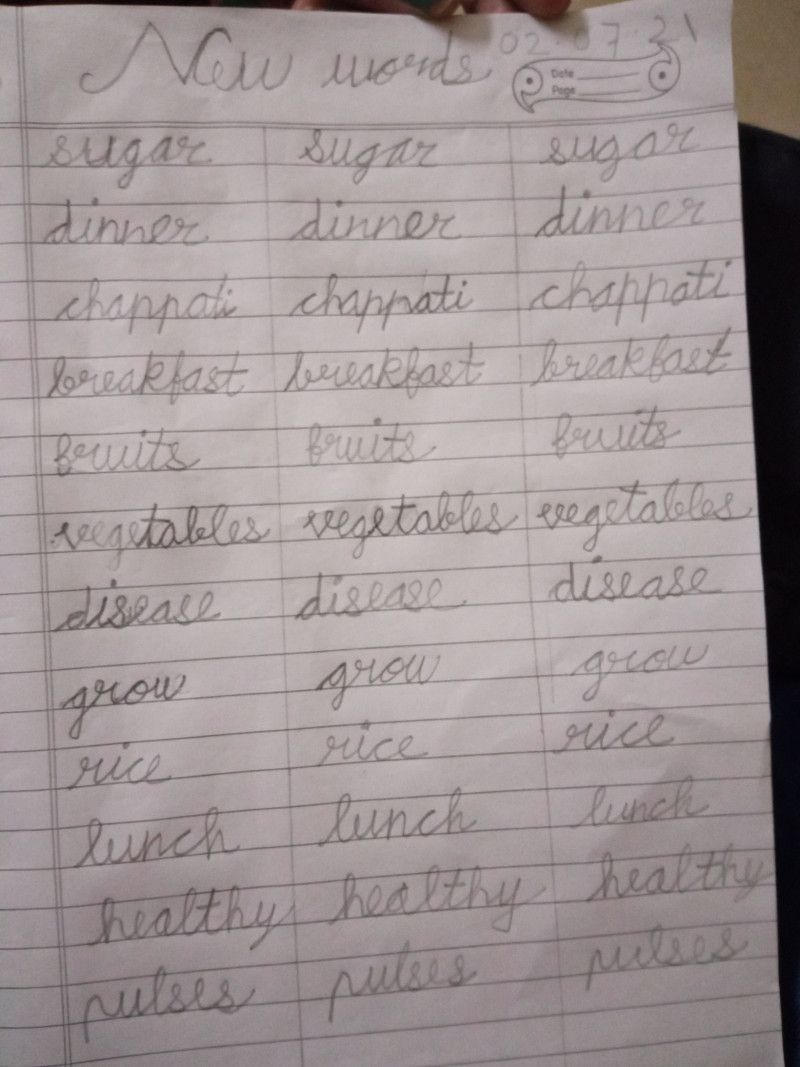 New words 02.07.21
Date
Page
sugar sugar sugar
dinner dinner dinner
chappati chappati chappati
breakfast breakfast breakfast
fruits fruits fruits
vegetables vegetables vegetables
disease disease disease
grow grow grow
rice rice rice
lunch lunch lunch
healthy healthy healthy
pulses pulses pulses